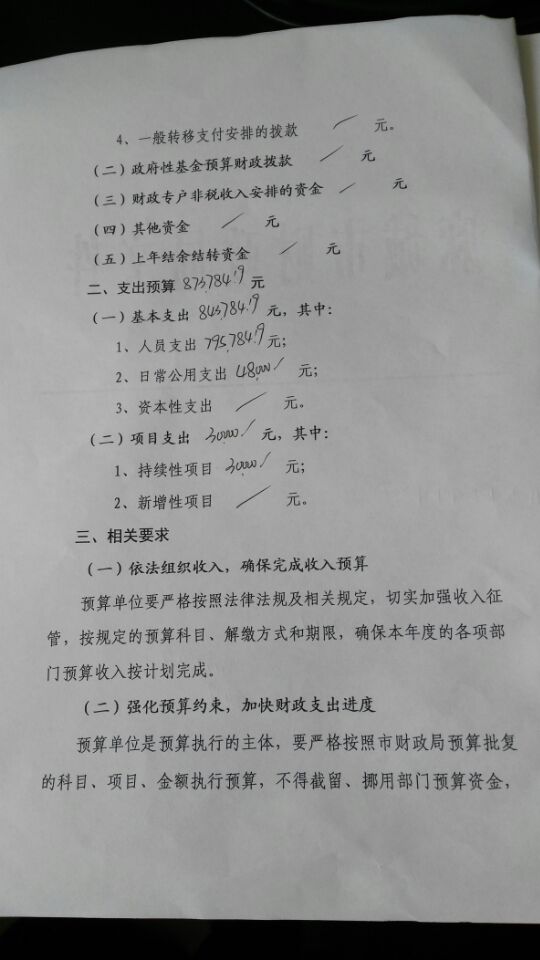 4、一般转移支付安排的拨款 / 元。
（二）政府性基金预算财政拨款 / 元
（三）财政专户非税收入安排的资金 / 元
（四）其他资金 / 元
（五）上年结余结转资金 / 元
二、支出预算 873,784.19 元
（一）基本支出 843,784.19 元，其中：
1、人员支出 795,784.19 元；
2、日常公用支出 48,000/ 元；
3、资本性支出 / 元。
（二）项目支出 30,000/ 元，其中：
1、持续性项目 30,000/ 元；
2、新增性项目 / 元。
三、相关要求
（一）依法组织收入，确保完成收入预算
预算单位要严格按照法律法规及相关规定，切实加强收入征
管，按规定的预算科目、解缴方式和期限，确保本年度的各项部
门预算收入按计划完成。
（二）强化预算约束，加快财政支出进度
预算单位是预算执行的主体，要严格按照市财政局预算批复
的科目、项目、金额执行预算，不得截留、挪用部门预算资金，